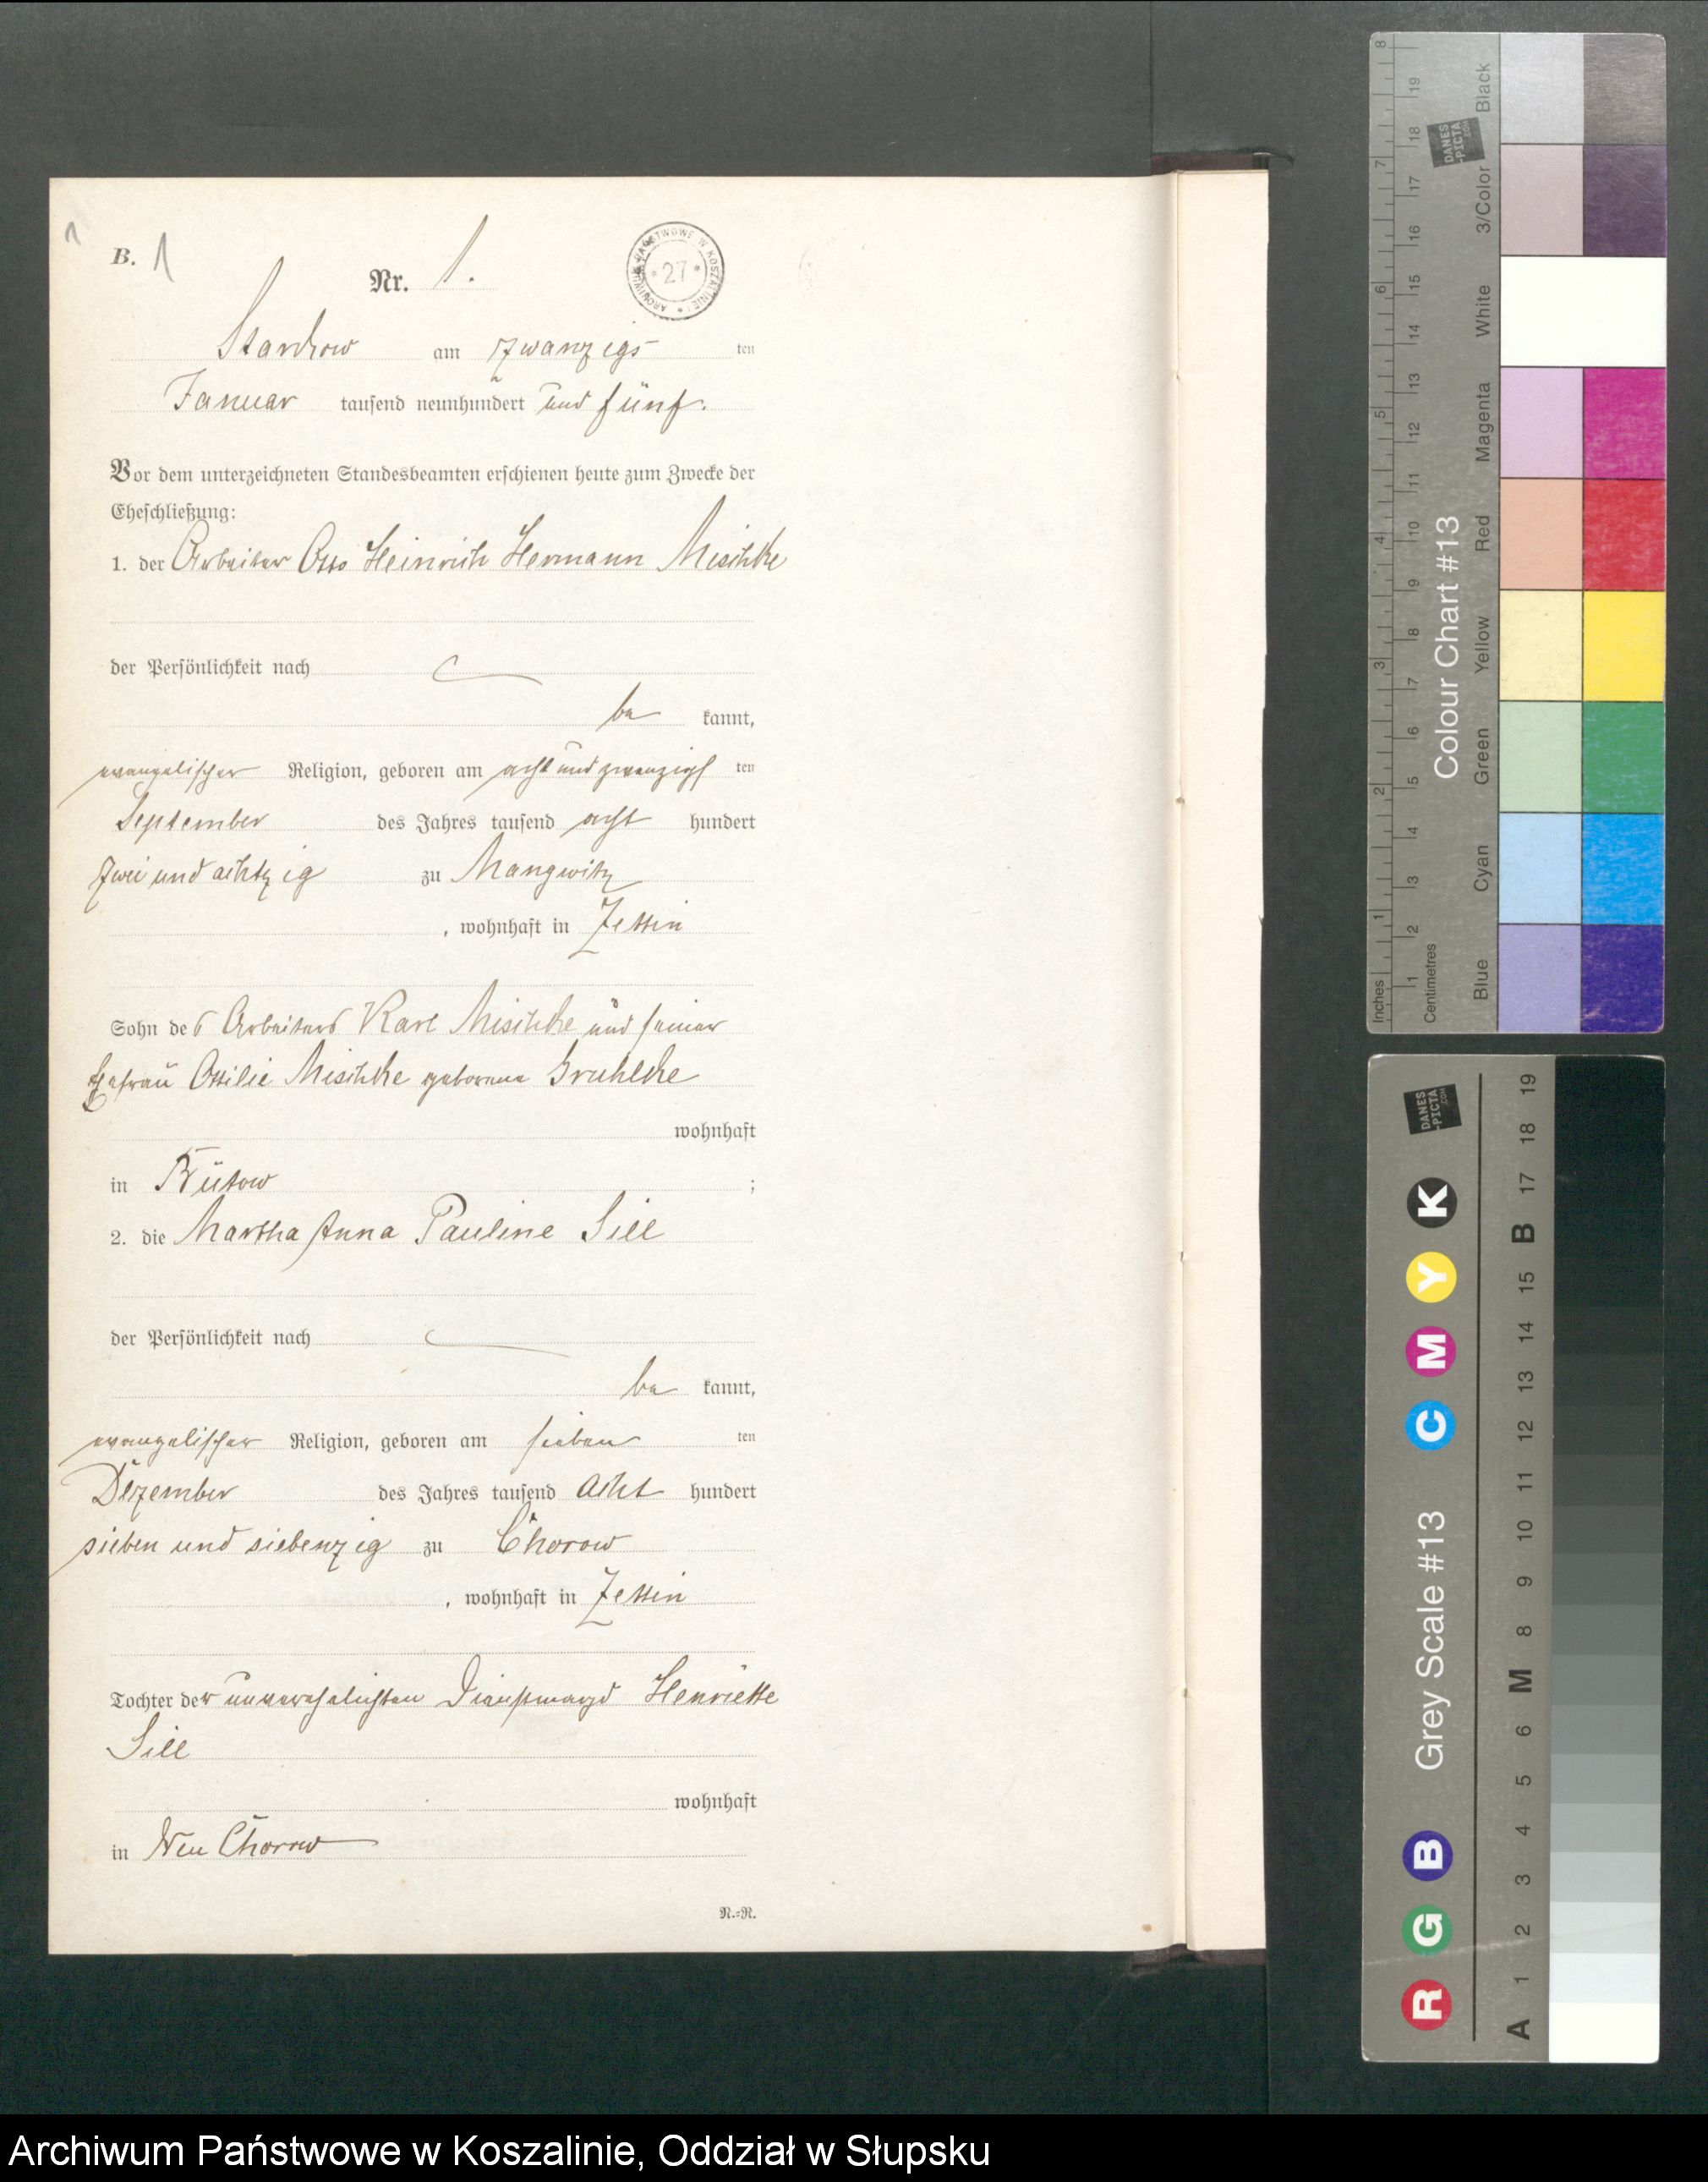 1
B. 1
Nr. 1.
ARCHIWUM PAŃSTWOWE W KOSZALINIE * 27 *
Starchow am zwanzigs ten
Januar tausend neunhundert und fünf.
Vor dem unterzeichneten Standesbeamten erschienen heute zum Zwecke der
Eheschließung:
1. der Arbeiter Otto Heinrich Hermann Mischke
der Persönlichkeit nach
be kannt,
evangelischer Religion, geboren am acht und zwanzigs ten
September des Jahres tausend acht hundert
zwei und achtzig zu Mangwitz
, wohnhaft in Zettin
Sohn des Arbeiters Karl Mischke und seiner
Ehefrau Ottilie Mischke geborene Gruhlke
wohnhaft
in Bütow ;
2. die Martha Anna Pauline Sill
der Persönlichkeit nach
be kannt,
evangelischer Religion, geboren am sieben ten
Dezember des Jahres tausend acht hundert
sieben und siebenzig zu Chorow
, wohnhaft in Zettin
Tochter der unverehelichten Dienstmagd Henriette
Sill
wohnhaft
in Neu Chorow
N.-N.
Inches 1 2 3 4 5 6 7 8
Centimetres 1 2 3 4 5 6 7 8 9 10 11 12 13 14 15 16 17 18 19
Colour Chart #13
Blue Cyan Green Yellow Red Magenta White 3/Color Black
DANES
-PICTA
.COM
Grey Scale #13
R G B C M Y K
A 1 2 3 4 5 6 M 8 9 10 11 12 13 14 15 B 17 18 19
DANES
-PICTA
.COM
Archiwum Państwowe w Koszalinie, Oddział w Słupsku